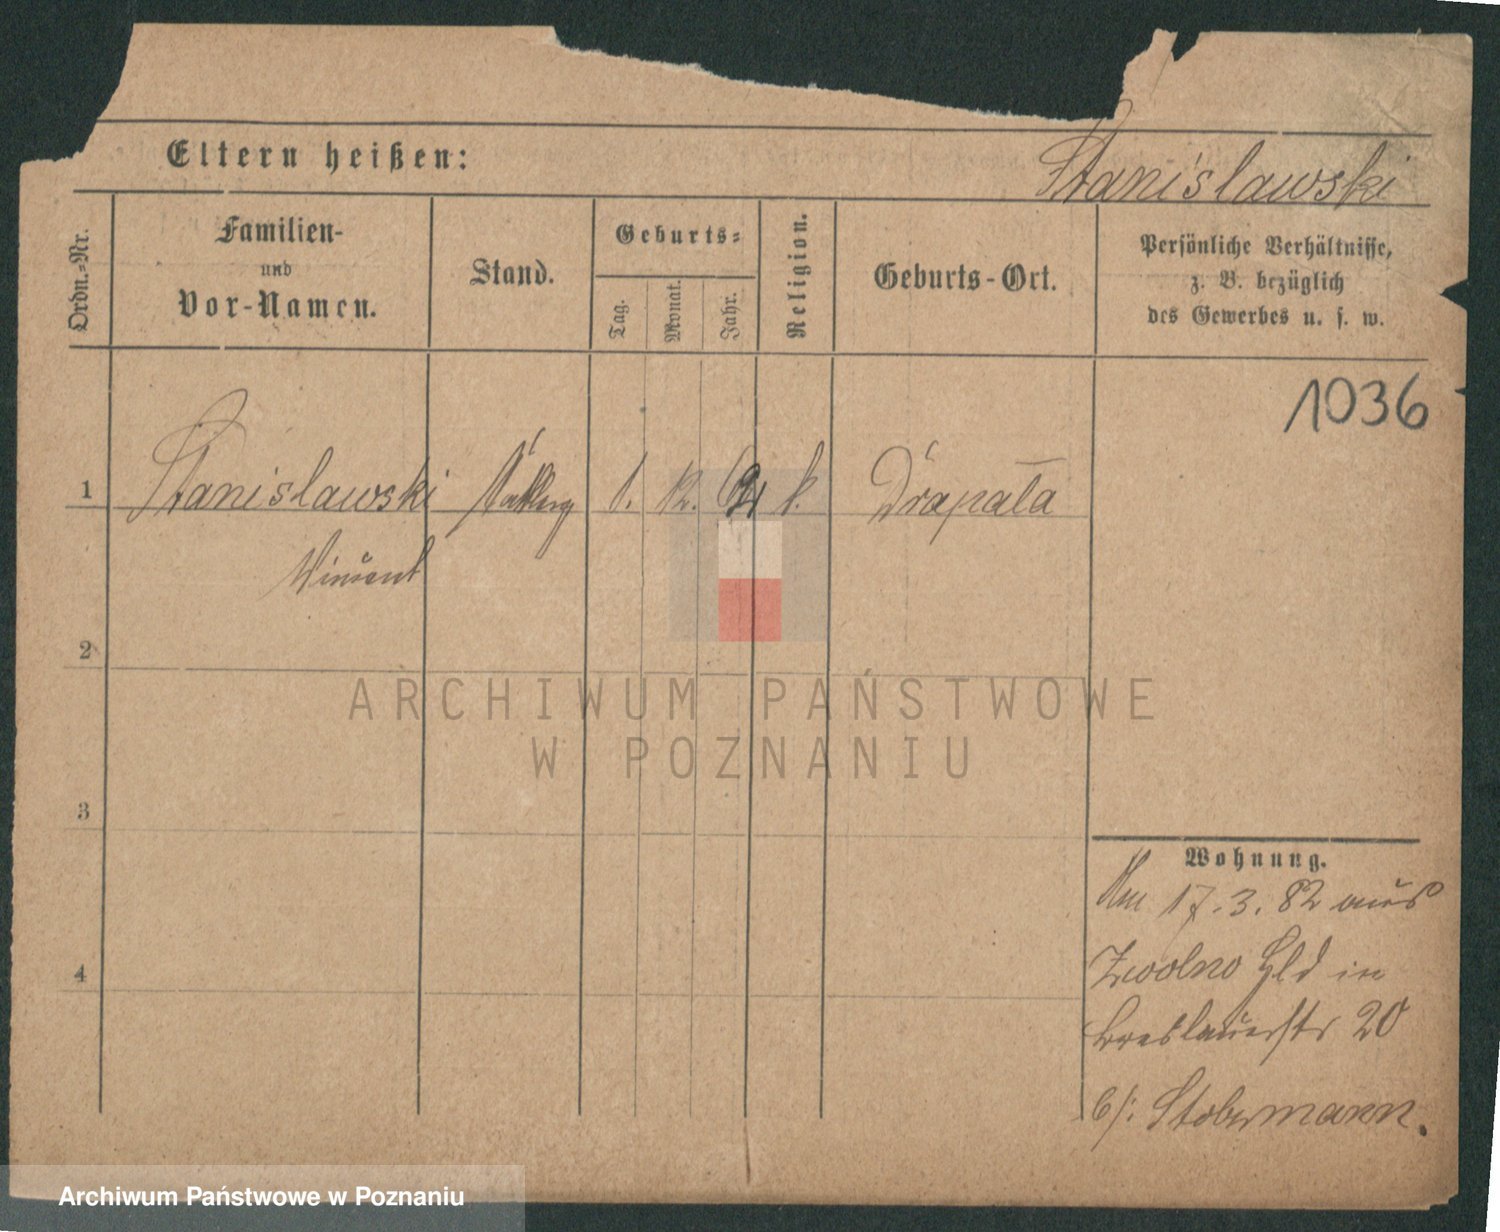 Eltern heißen:
Stanislawski
Ordn.-Nr.
Familien-
und
Vor-Namen.
Stand.
Geburts-
Tag.
Monat.
Jahr.
Religion.
Geburts-Ort.
Persönliche Verhältnisse,
z. B. bezüglich
des Gewerbes u. s. w.
1036
1 Stanislawski 1. 12. k. Drapała
Vincent
2
3
4
Wohnung.
Am 17.3.82 aus
Zwolno in
Breslauerstr 20
b/: Stobermann.
ARCHIWUM PAŃSTWOWE
W POZNANIU
Archiwum Państwowe w Poznaniu